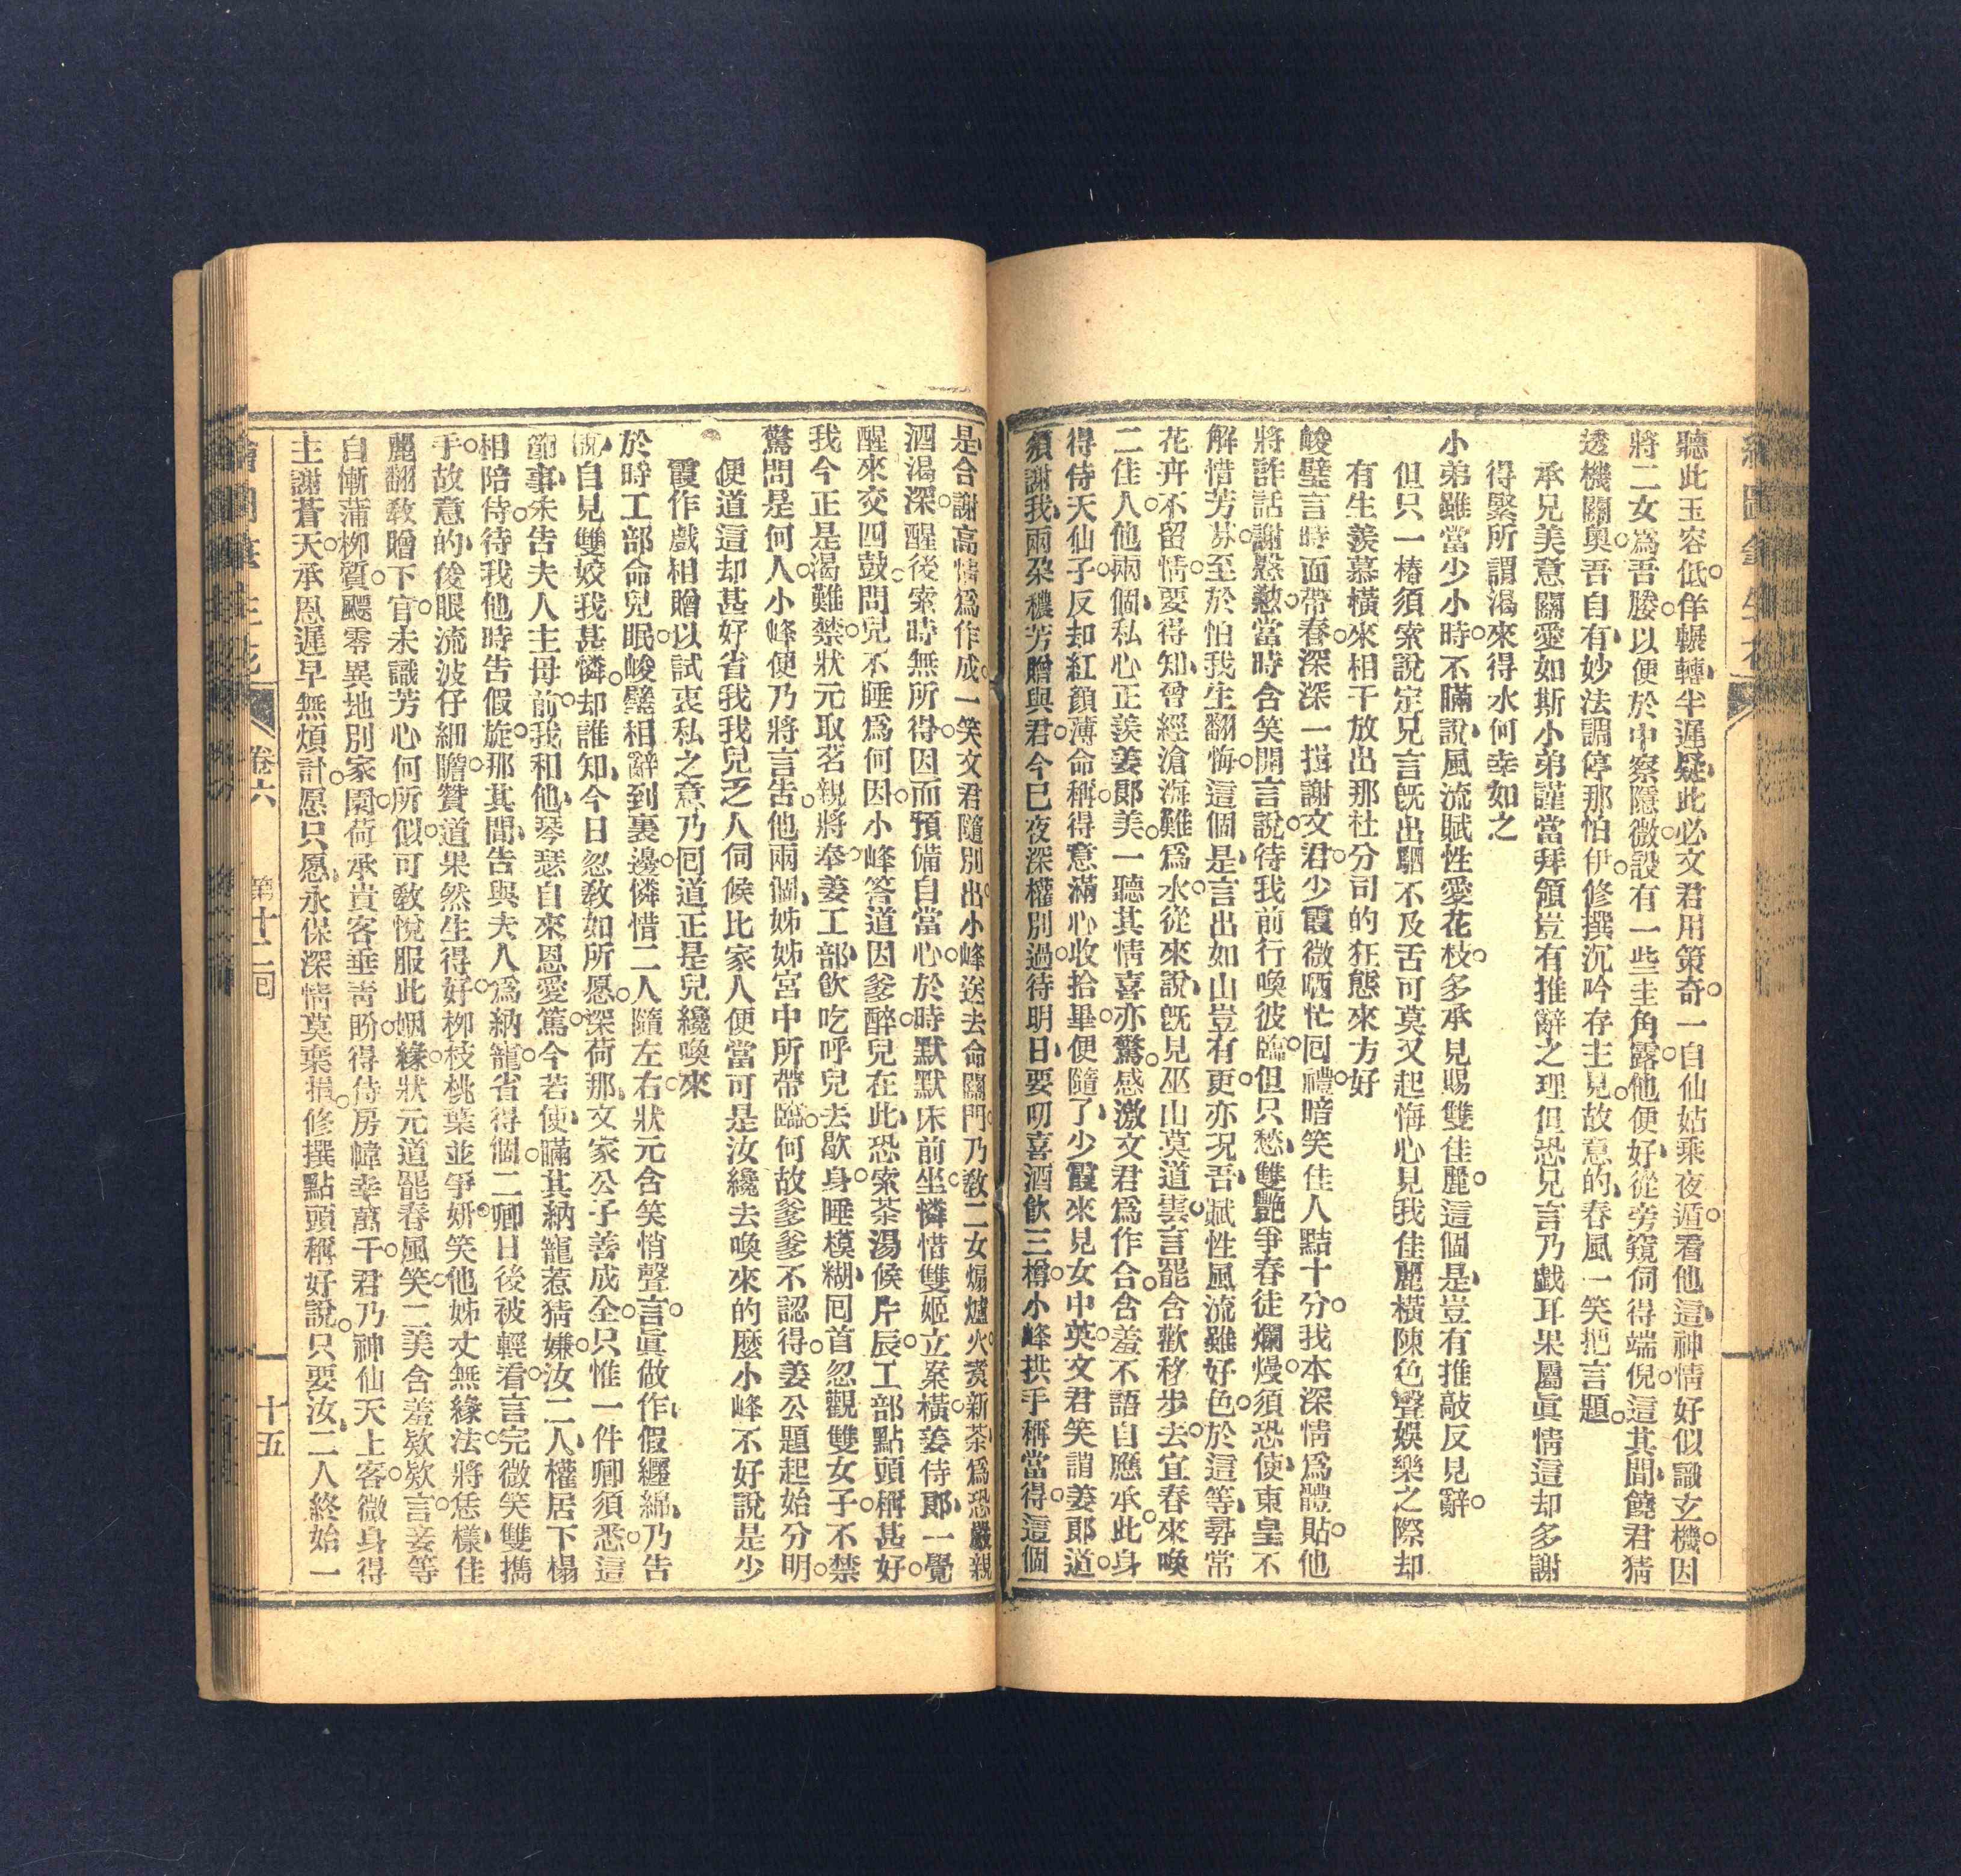 聽此玉容低。佯輾轉、半遲疑、此必文君用策奇。一自仙姑乘夜遁。看他這、神情好似識玄機。因
將二女爲吾媵。以便於中察隱微。設有一些圭角露。他便好、從旁窺伺得端倪。這其間、饒君猜
透機關奧。吾自有、妙法調停那怕伊。修撰沉吟存主見。故意的、春風一笑把言題。
承兄美意關愛如斯小弟謹當拜領豈有推辭之理但恐兄言乃戲耳果屬眞情這却多謝
得緊所謂渴來得水何幸如之
小弟雖當少小時。不瞞說、風流賦性愛花枝。多承見賜雙佳麗。這個是、豈有推敲反見辭。
但只一樁須索說定兄言旣出駟不及舌可莫又起悔心見我佳麗橫陳色聲娛樂之際却
有生羨慕橫來相干放出那社分司的狂態來方好
峻璧言時面帶春。深深一揖謝文君。少霞微哂忙囘禮。暗笑佳人黠十分。我本深情爲體貼。他
將詐話謝慇懃。當時含笑開言說。待我前行喚彼臨。但只愁、雙艷爭春徒爛熳。須恐使、東皇不
解惜芳芬。至於怕我生翻悔。這個是、言出如山豈有更。亦况吾、賦性風流雖好色。於這等、尋常
花卉不留情。要得知、曾經滄海難爲水。從來說、旣見巫山莫道雲。言罷含歡移步去。宜春來喚
二佳人。他兩個、私心正羨姜郞美。一聽其情喜亦驚。感激文君爲作合。含羞不語自應承。此身
得侍天仙子。反却紅顏薄命稱。得意滿心收拾畢。便隨了、少霞來見女中英。文君笑謂姜郞道。
須謝我、兩朶穠芳贈與君。今已夜深權別過。待明日、要叨喜酒飲三樽。小峰拱手稱當得。這個
是、合謝高情爲作成。一笑文君隨別出。小峰送去命關門。乃敎二女煽爐火。煑新茶、爲恐嚴親
酒渴深。醒後索時無所得。因而預備自當心。於時默默床前坐。憐惜雙姬立案橫。姜侍郞、一覺
醒來交四鼓。問兒不睡爲何因。小峰答道因爹醉。兒在此、恐索茶湯候片辰。工部點頭稱甚好。
我今正是渴難禁。狀元取茗親將奉。姜工部、飲吃呼兒去歇身。睡模糊、囘首忽觀雙女子。不禁
驚問是何人。小峰便乃將言告。他兩個、姊姊宮中所帶臨。何故爹爹不認得。姜公題起始分明。
便道這却甚好省我我兒乏人伺候比家人便當可是汝纔去喚來的麽小峰不好說是少
霞作戲相贈以試衷私之意乃囘道正是兒纔喚來
於時工部命兒眠。峻璧相辭到裏邊。憐惜二人隨左右。狀元含笑悄聲言。眞做作、假纒綿、乃告
說、自見雙姣我甚憐。却誰知、今日忽敎如所愿。深荷那、文家公子善成全。只惟一件卿須悉。這
節事、未告夫人主母前。我和他、琴瑟自來恩愛篤。今若使、瞞其納寵惹猜嫌。汝二人、權居下榻
相陪侍。待我他時告假旋。那其間、告與夫人爲納寵。省得個、二卿日後被輕看。言完微笑雙攜
手。故意的、俊眼流波仔細瞻。贊道果然生得好。柳枝桃葉並爭妍。笑他姊丈無緣法。將恁樣、佳
麗翻敎贈下官。未識芳心何所似。可敎悅服此姻緣。狀元道罷春風笑。二美含羞欵欵言。妾等
自慚蒲柳質。飄零異地別家園。荷承貴客垂靑盼。得侍房幃幸萬千。君乃神仙天上客。微身得
主謝蒼天。承恩遲早無煩計。愿只愿、永保深情莫棄捐。修撰點頭稱好說。只要汝、二人終始一
卷六
第十二回
十五